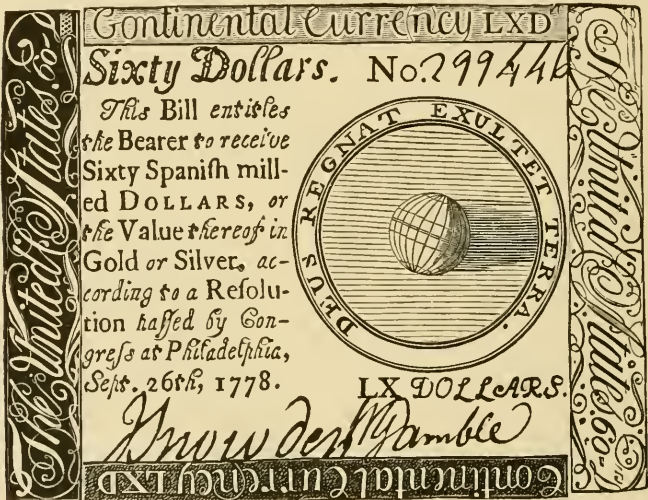 Continental Currency LXD
Sixty Dollars. No. 299446
This Bill entitles
the Bearer to receive
Sixty Spaniſh mill-
ed DOLLARS, or
the Value thereof in
Gold or Silver, ac-
cording to a Reſolu-
tion paſſed by Con-
greſs at Philadelphia,
Sept. 26th, 1778.
DEUS REGNAT EXULTET TERRA.
LX DOLLARS.
J Snowden W Gamble
Continental Currency LXD
The United States. 60
The United States 60